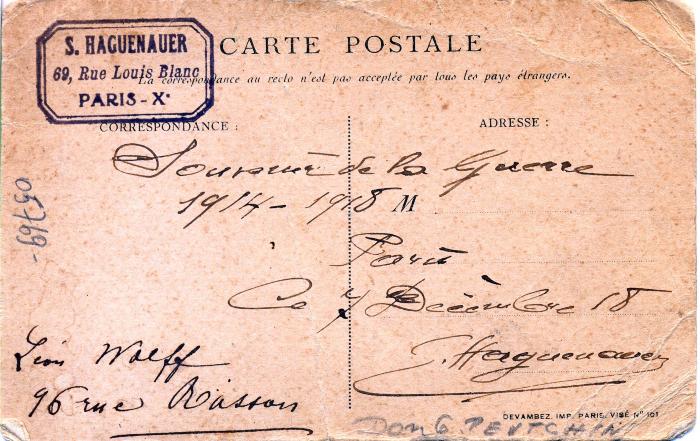 S. HAGUENAUER
69, Rue Louis Blanc
PARIS-X°
CARTE POSTALE
La correspondance au recto n'est pas acceptée par tous les pays étrangers.
CORRESPONDANCE :
ADRESSE :
Souvenir de la Guerre
1914-1918
M
Paris
Ce 7 Décembre 18
S. Haguenauer
Léon Wolff
96 rue
05769-
DON G. PEUTCHIN
DEVAMBEZ, IMP. PARIS. VISÉ N° 101